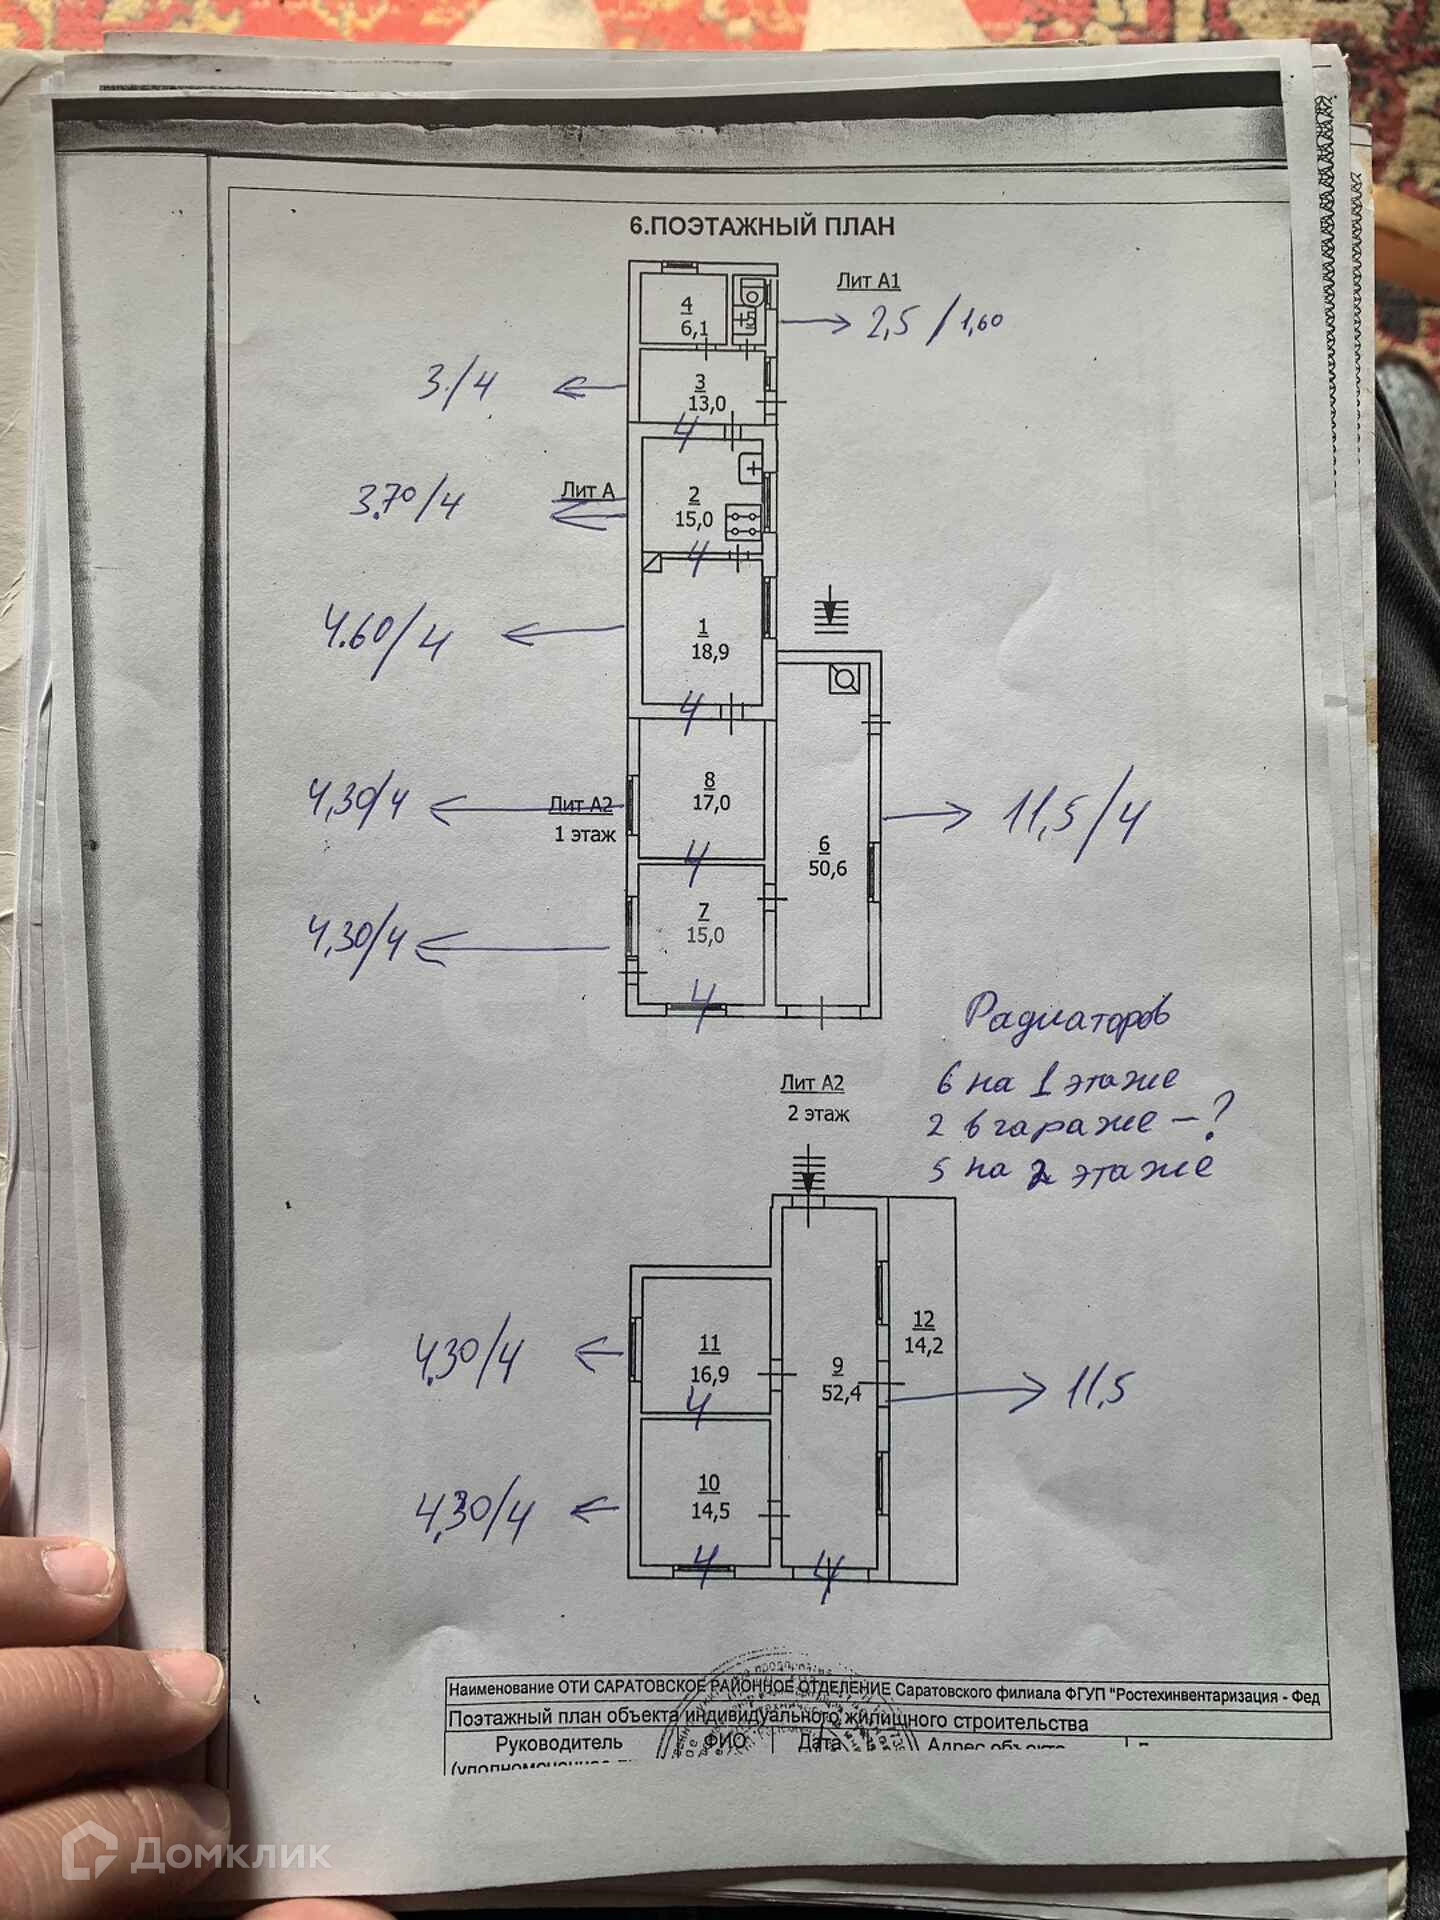 6.ПОЭТАЖНЫЙ ПЛАН
Лит А1
4
6,1
5
2,5 / 1,60
3./4
3
13,0
4
3.70/4
Лит А
2
15,0
4
4.60/4
1
18,9
4
4,30/4
Лит А2
1 этаж
8
17,0
4
6
50,6
11,5/4
4,30/4
7
15,0
4
Радиаторов
6 на 1 этаже
2 в гараже - ?
5 на 2 этаже
Лит А2
2 этаж
4.30/4
11
16,9
4
9
52,4
12
14,2
11,5
4.30/4
10
14,5
4
4
Наименование ОТИ САРАТОВСКОЕ РАЙОННОЕ ОТДЕЛЕНИЕ Саратовского филиала ФГУП "Ростехинвентаризация - Фед
Поэтажный план объекта индивидуального жилищного строительства
Руководитель ФИО Дата Адрес объекта
Домклик